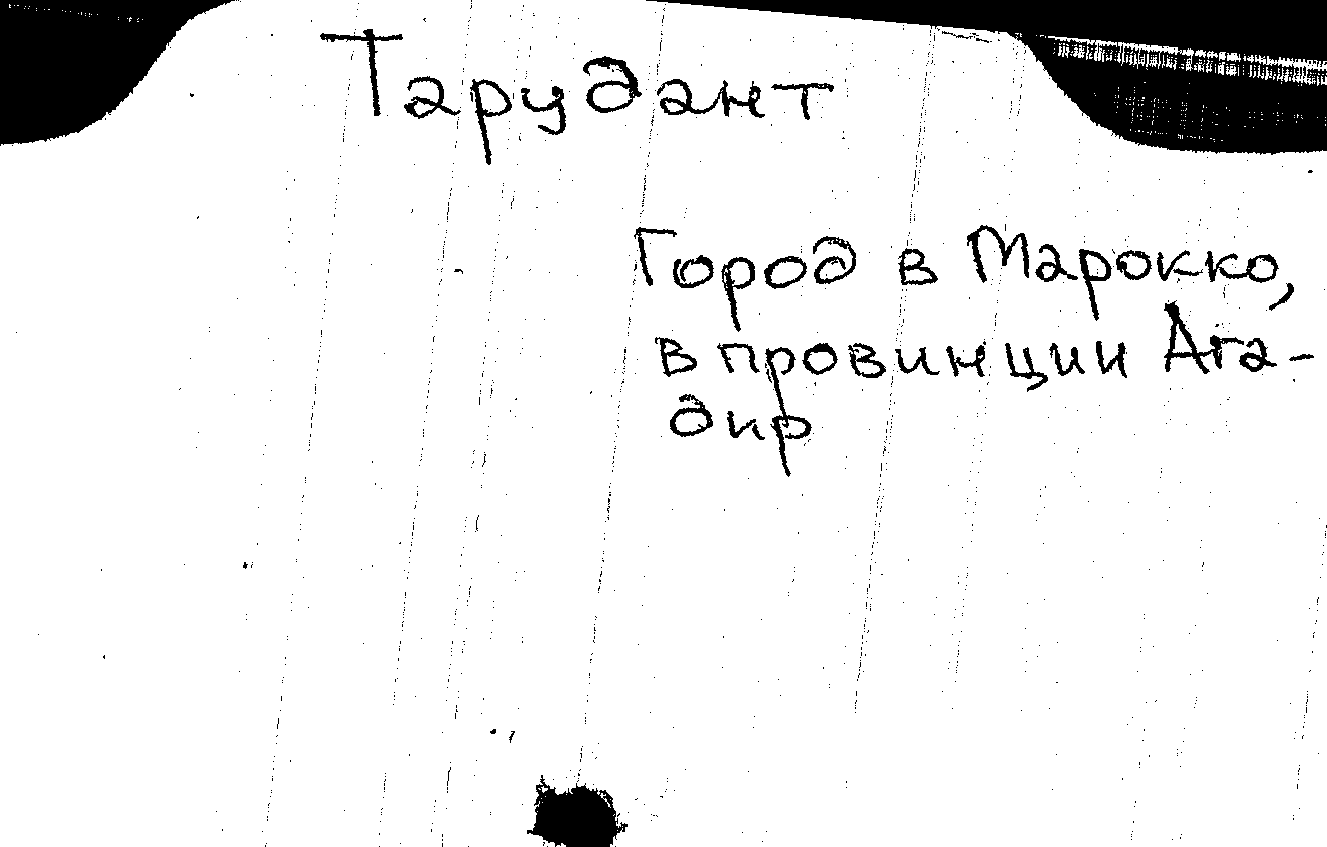 Тарудант
Город в Марокко,
в провинции Ага-
дир